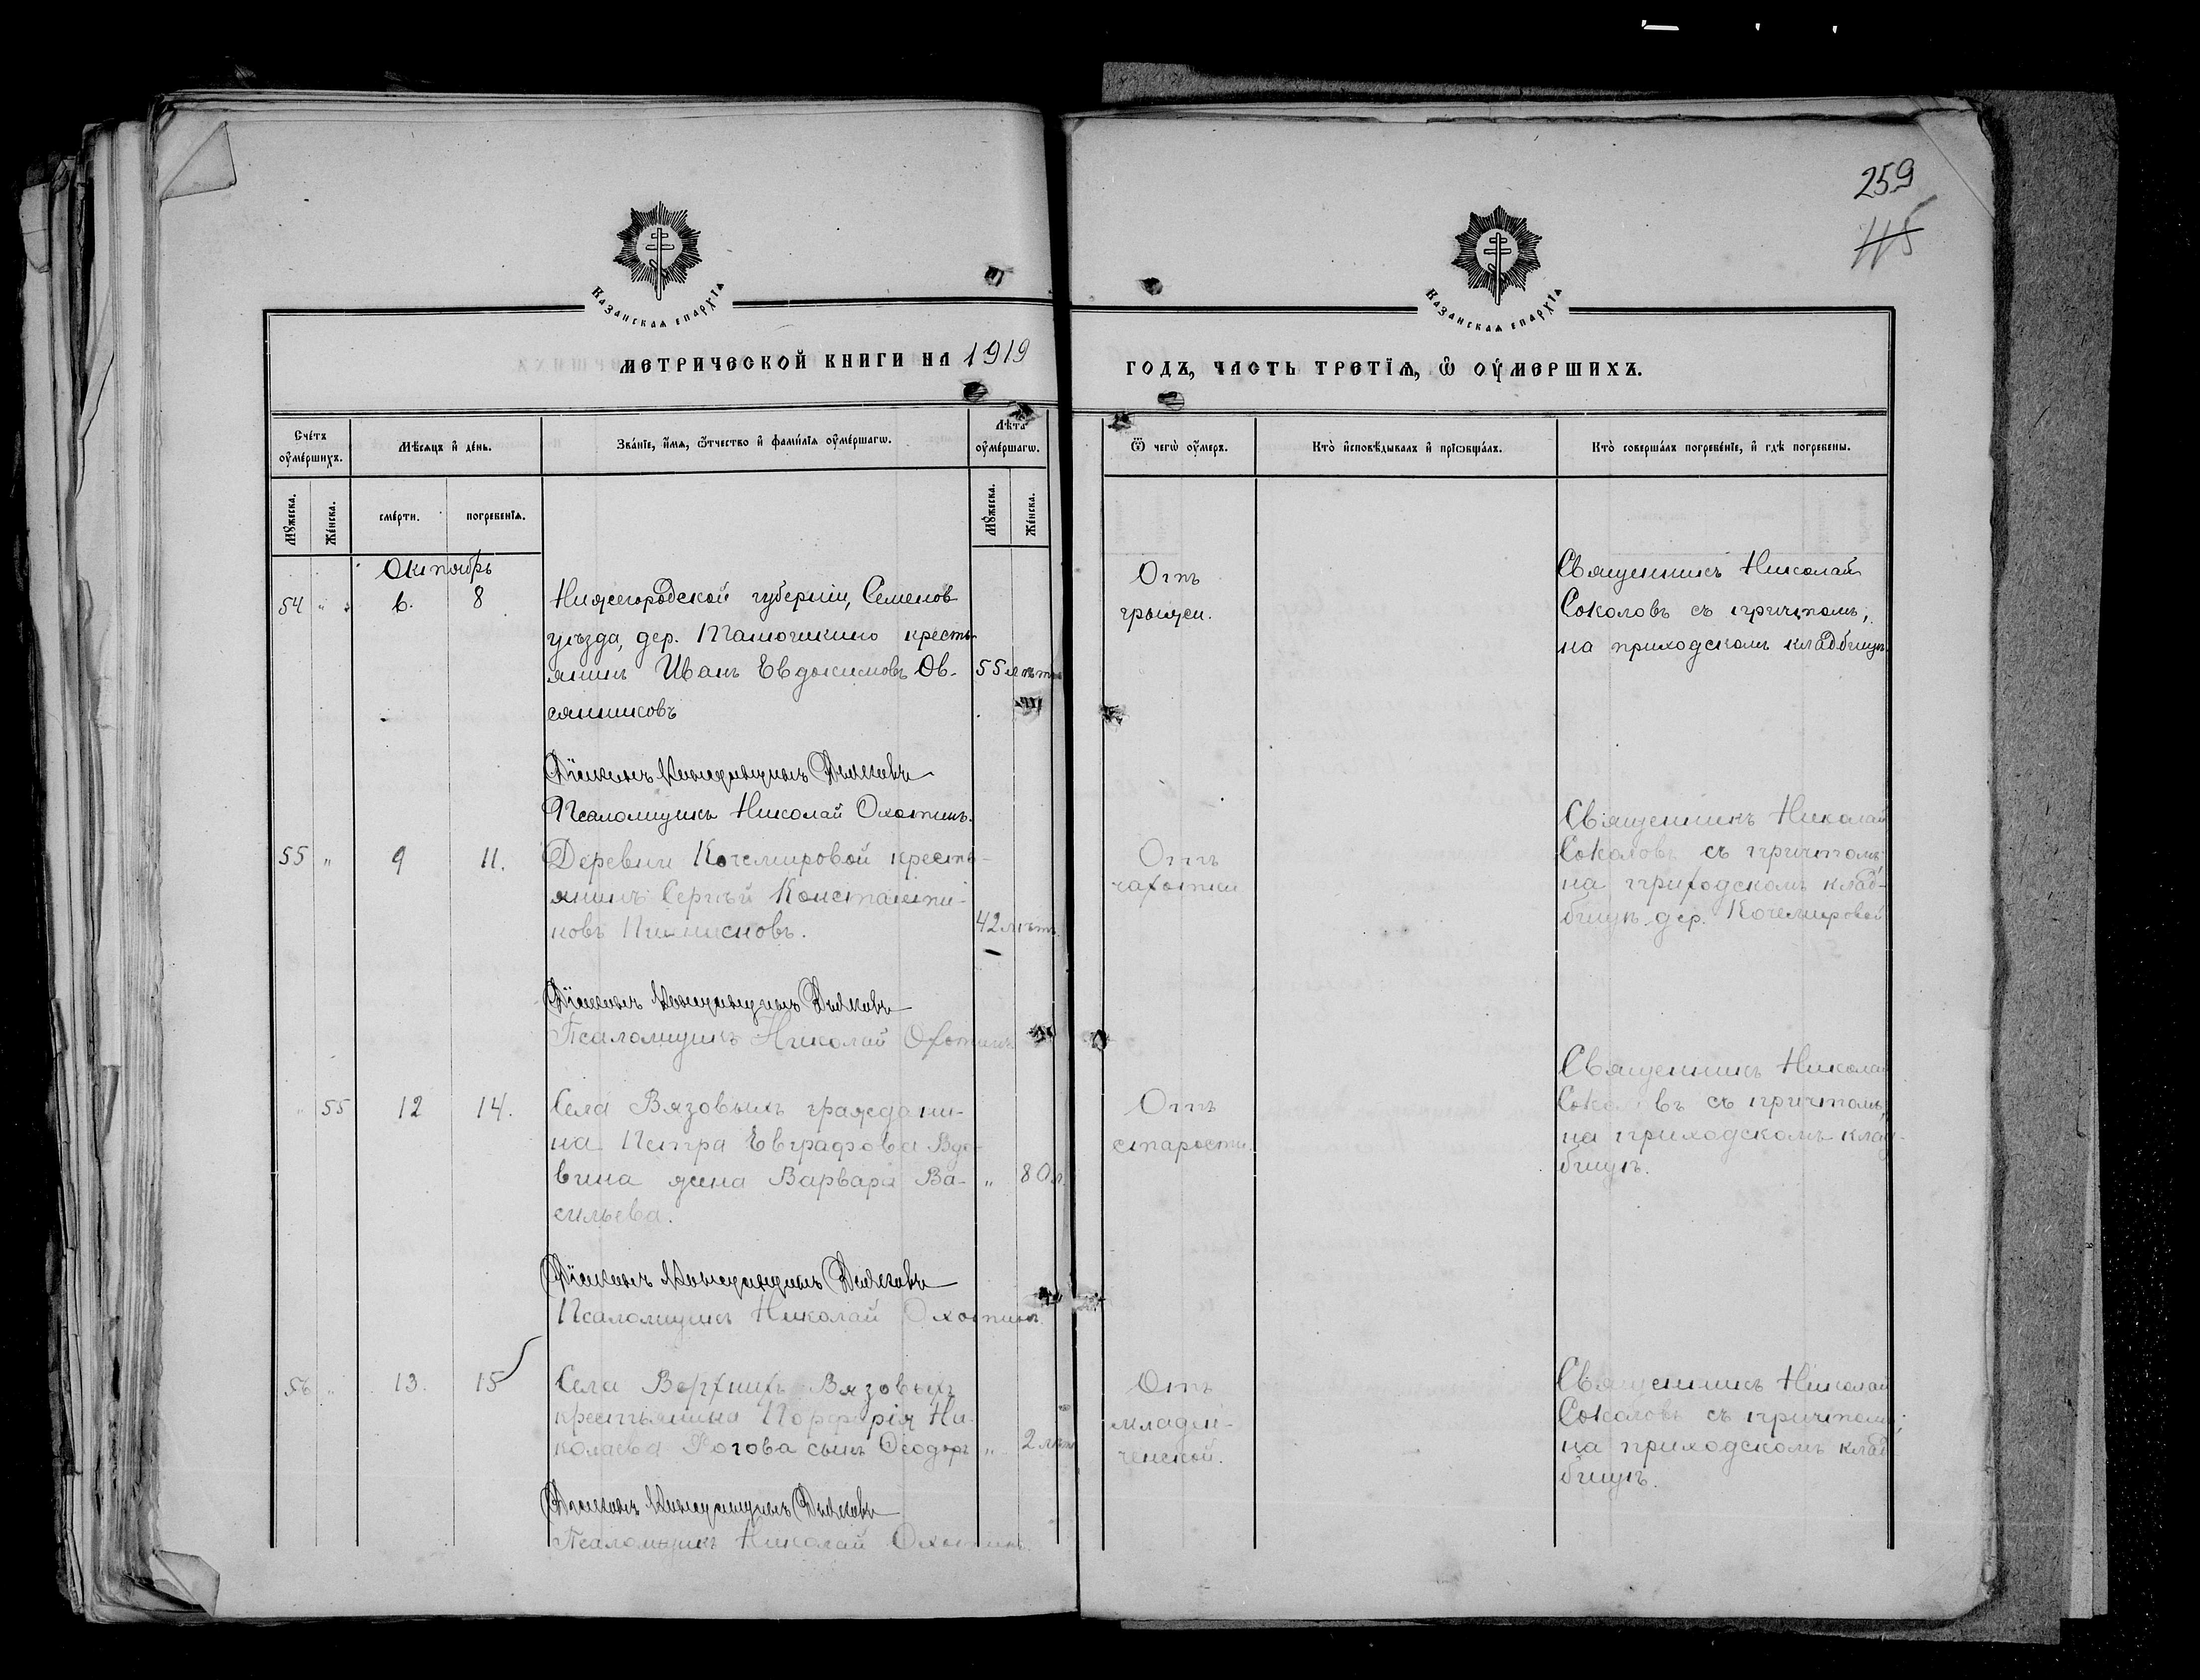 259
115
Казанская епархїѧ
Казанская епархїѧ
МЕТРИЧЕСКОЙ КНИГИ НА 1919
ГОДЪ, ЧАСТЬ ТРЕТЇѦ, Ѡ ОУМЕРШИХЪ.
Счетъ оумершихъ.
Мѣсяцъ и день.
Званїе, имѧ, ѿчество и фамилїѧ оумершагѡ.
Лѣта оумершагѡ.
Ѿ чегѡ оумеръ.
Кто исповѣдывалъ и прїѡбщалъ.
Кто совершалъ погребенїе, и гдѣ погребены.
Мꙋжеска.
Женска.
смерти.
погребенїѧ.
Мꙋжеска.
Женска.
Октябрь
54 " 6. 8
Нижегородской губерніи, Семенов
уѣзда, дер. кресть-
янинъ Иванъ Евдокимовъ Ов-
сянниковъ
55 лѣтъ
Отъ
грыжи.
Священникъ Николай
Соколовъ съ причтомъ,
на приходскомъ кладбищѣ.
Дїаконъ
Псаломщикъ Николай Охотинъ.
55 " 9 11.
Деревни Кочемировой кресть-
янинъ Сергѣй Константи-
новъ
42 лѣтъ.
Отъ
чахотки
Священникъ Николай
Соколовъ съ причтомъ,
на приходскомъ клад-
бищѣ дер. Кочемировой
Дїаконъ
Псаломщикъ Николай Охотинъ
" 55 12 14.
Села Вязовыхъ граждани-
на Петра Евграфова Вдо-
вина жена Варвара Ва-
сильева.
" 80 л.
Отъ
старости.
Священникъ Николай
Соколовъ съ причтомъ,
на приходскомъ клад-
бищѣ.
Дїаконъ
Псаломщикъ Николай Охотинъ
56 " 13. 15
Села Верхнихъ Вязовыхъ
крестьянина Порфирія Ни-
колаева Рогова сынъ Ѳеодоръ
" 2 лѣтъ
Отъ
младен-
ческой.
Священникъ Николай
Соколовъ съ причтомъ;
на приходскомъ клад-
бищѣ.
Дїаконъ
Псаломщикъ Николай Охотинъ.